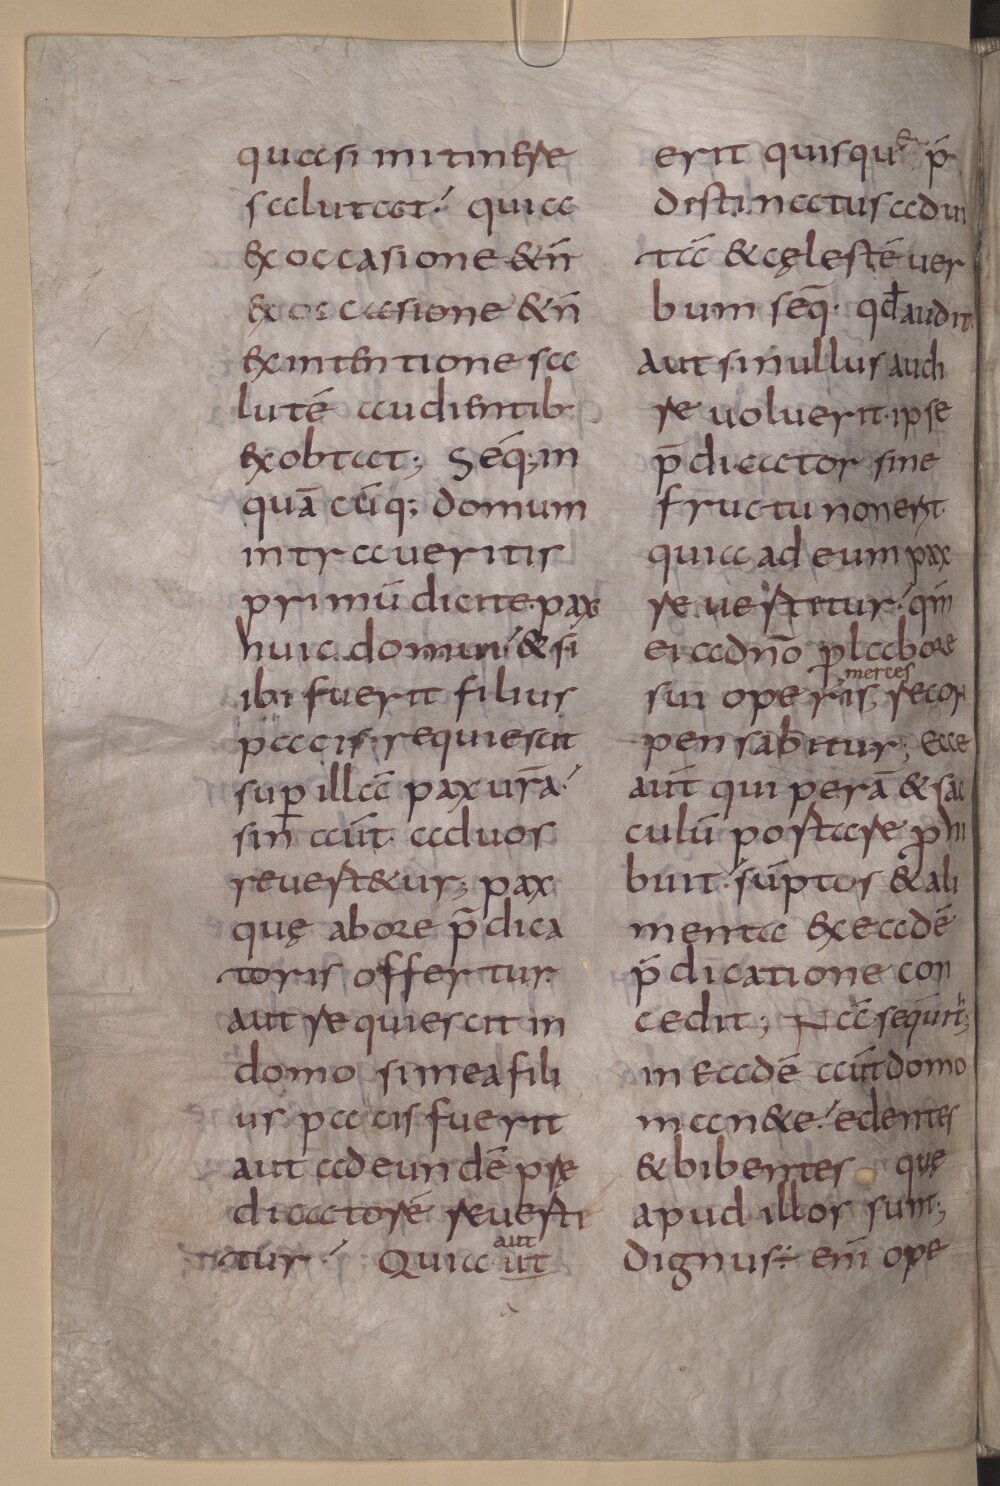 quasi initinere
salutat; quia
ex occasione &n̄
ex occasione &n̄
ex intentione sa
lutē audientib·
exobtat; Seq̄; in
quā cūq; domum
intraueritis
primū dicite· pax
huic domui; & si
ibi fuerit filius
pacis· requiescit
sup̱ illā pax ur̄a;
sin aūt· aduos
reuert&ur; pax
quę abore p̄dica
toris offertur·
aut requiescit in
domo si inea fili
us pacis fuerit
aut adeundē p̄rę
dicatorē reuerti
tur; Quia ut aut
erit quisque p̄
destinatus adui
tā & cęlestē uer
bum seq̄· qđ audit·
aut si nullus audi
re uoluerit· ipse
p̄dicator sine
fructu non erit·
quia ad eum pax
reuertitur; qm̄
ei adn̄o p̱ labore
sui operis merces recom
pensabitur; ecce
aūt qui perā & sac
culū portare p̱hi
buit; sūptos & ali
menta ex eadē
p̄dicatione con
cedit; Nā sequit̄;
in eadē aūt domo
man&e; edentes
& bibentes quę
apud illos sunt;
dignus÷ eni ope